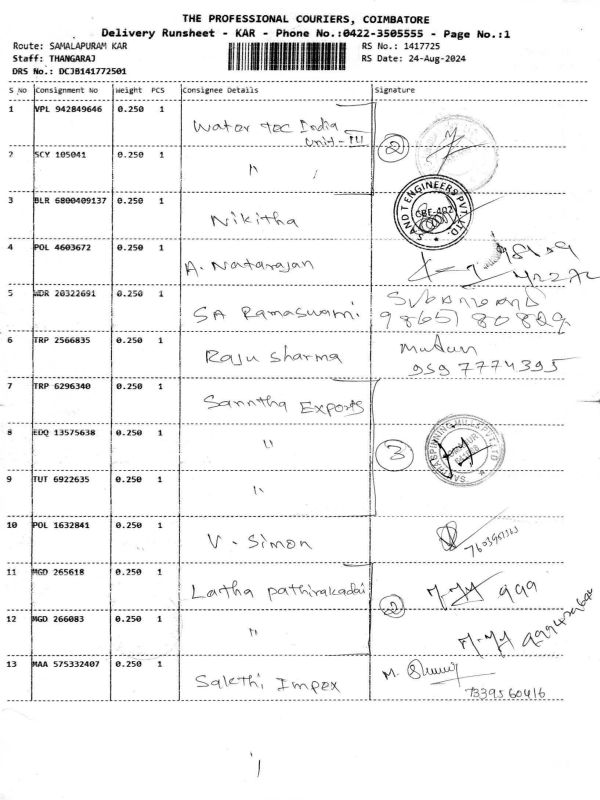 THE PROFESSIONAL COURIERS, COIMBATORE
Delivery Runsheet - KAR - Phone No.:0422-3505555 - Page No.:1
Route: SAMALAPURAM KAR RS No.: 1417725
Staff: THANGARAJ RS Date: 24-Aug-2024
DRS No.: DCJB141772501
S No Consignment No Weight PCS Consignee Details Signature
1 VPL 942849646 0.250 1 Water tec India
Unit-III
2
2 SCY 105041 0.250 1 "
3 BLR 6800409137 0.250 1 Nikitha
SAND T ENGINEERS PVT. LTD. CBE-402
4 POL 4603672 0.250 1 A. Natarajan
42272
5 WDR 20322691 0.250 1 SA Ramaswami
98651 80829
6 TRP 2566835 0.250 1 Raju Sharma
959 7774395
7 TRP 6296340 0.250 1 Sanntha Exports
8 EDQ 13575638 0.250 1 "
3
SPINNING MILLS PVT LTD
9 TUT 6922635 0.250 1 "
10 POL 1632841 0.250 1 V. Simon
11 MGD 265618 0.250 1 Latha pathirakadai
2 999
12 MGD 266083 0.250 1 "
13 MAA 575332407 0.250 1 Sakthi Impex
M.
7339560416